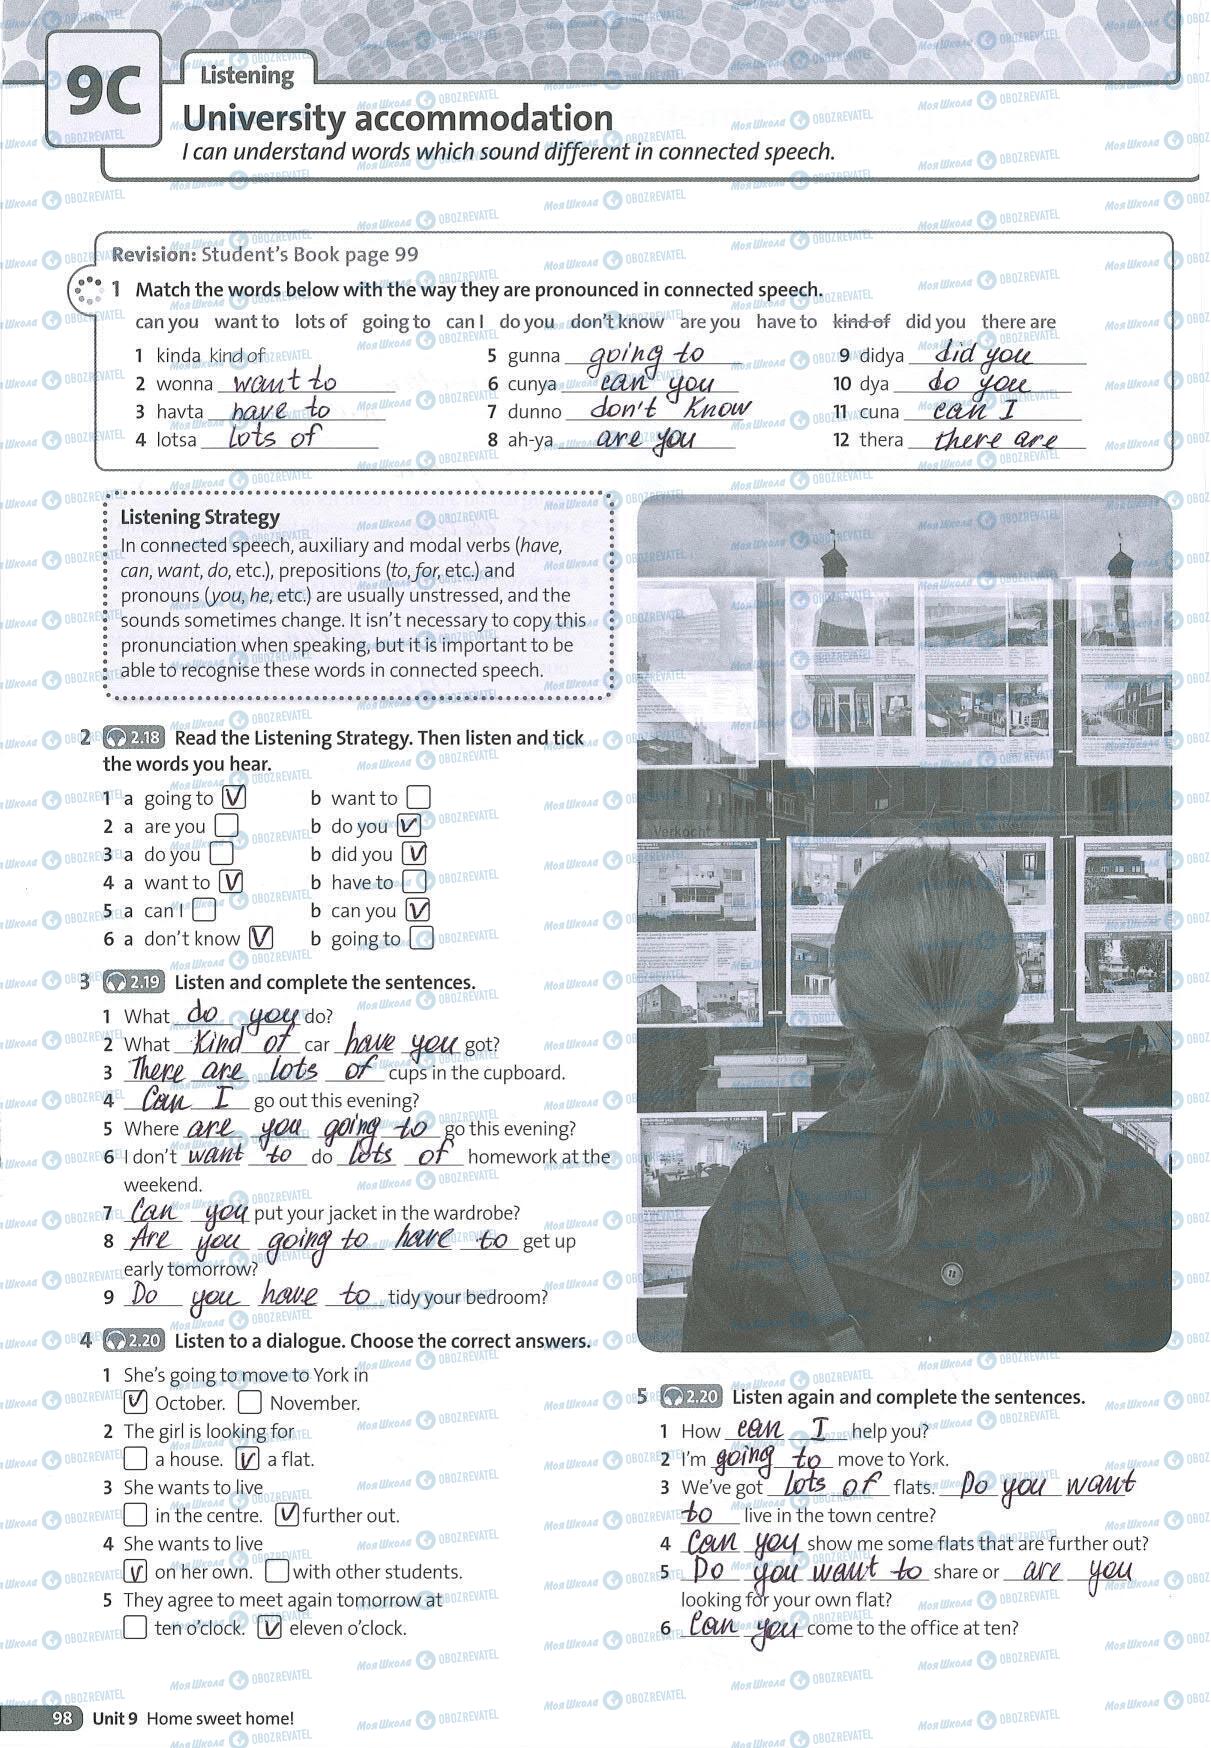 9C
Listening
University accommodation
I can understand words which sound different in connected speech.
Revision: Student's Book page 99
1 Match the words below with the way they are pronounced in connected speech.
can you want to lots of going to can I do you don't know are you have to kind of did you there are
1 kinda kind of
2 wonna want to
3 havta have to
4 lotsa lots of
5 gunna going to
6 cunya can you
7 dunno don't know
8 ah-ya are you
9 didya did you
10 dya do you
11 cuna can I
12 thera there are
Listening Strategy
In connected speech, auxiliary and modal verbs (have,
can, want, do, etc.), prepositions (to, for, etc.) and
pronouns (you, he, etc.) are usually unstressed, and the
sounds sometimes change. It isn't necessary to copy this
pronunciation when speaking, but it is important to be
able to recognise these words in connected speech.
2 2.18 Read the Listening Strategy. Then listen and tick
the words you hear.
1 a going to V b want to
2 a are you b do you V
3 a do you b did you V
4 a want to V b have to
5 a can I b can you V
6 a don't know V b going to
3 2.19 Listen and complete the sentences.
1 What do you do?
2 What kind of car have you got?
3 There are lots of cups in the cupboard.
4 Can I go out this evening?
5 Where are you going to go this evening?
6 I don't want to do lots of homework at the
weekend.
7 Can you put your jacket in the wardrobe?
8 Are you going to have to get up
early tomorrow?
9 Do you have to tidy your bedroom?
4 2.20 Listen to a dialogue. Choose the correct answers.
1 She's going to move to York in
V October. November.
2 The girl is looking for
a house. V a flat.
3 She wants to live
in the centre. V further out.
4 She wants to live
V on her own. with other students.
5 They agree to meet again tomorrow at
ten o'clock. V eleven o'clock.
Verkocht
Verkoop
5 2.20 Listen again and complete the sentences.
1 How can I help you?
2 I'm going to move to York.
3 We've got lots of flats. Do you want
to live in the town centre?
4 Can you show me some flats that are further out?
5 Do you want to share or are you
looking for your own flat?
6 Can you come to the office at ten?
98 Unit 9 Home sweet home!
Моя Школа OBOZREVATEL